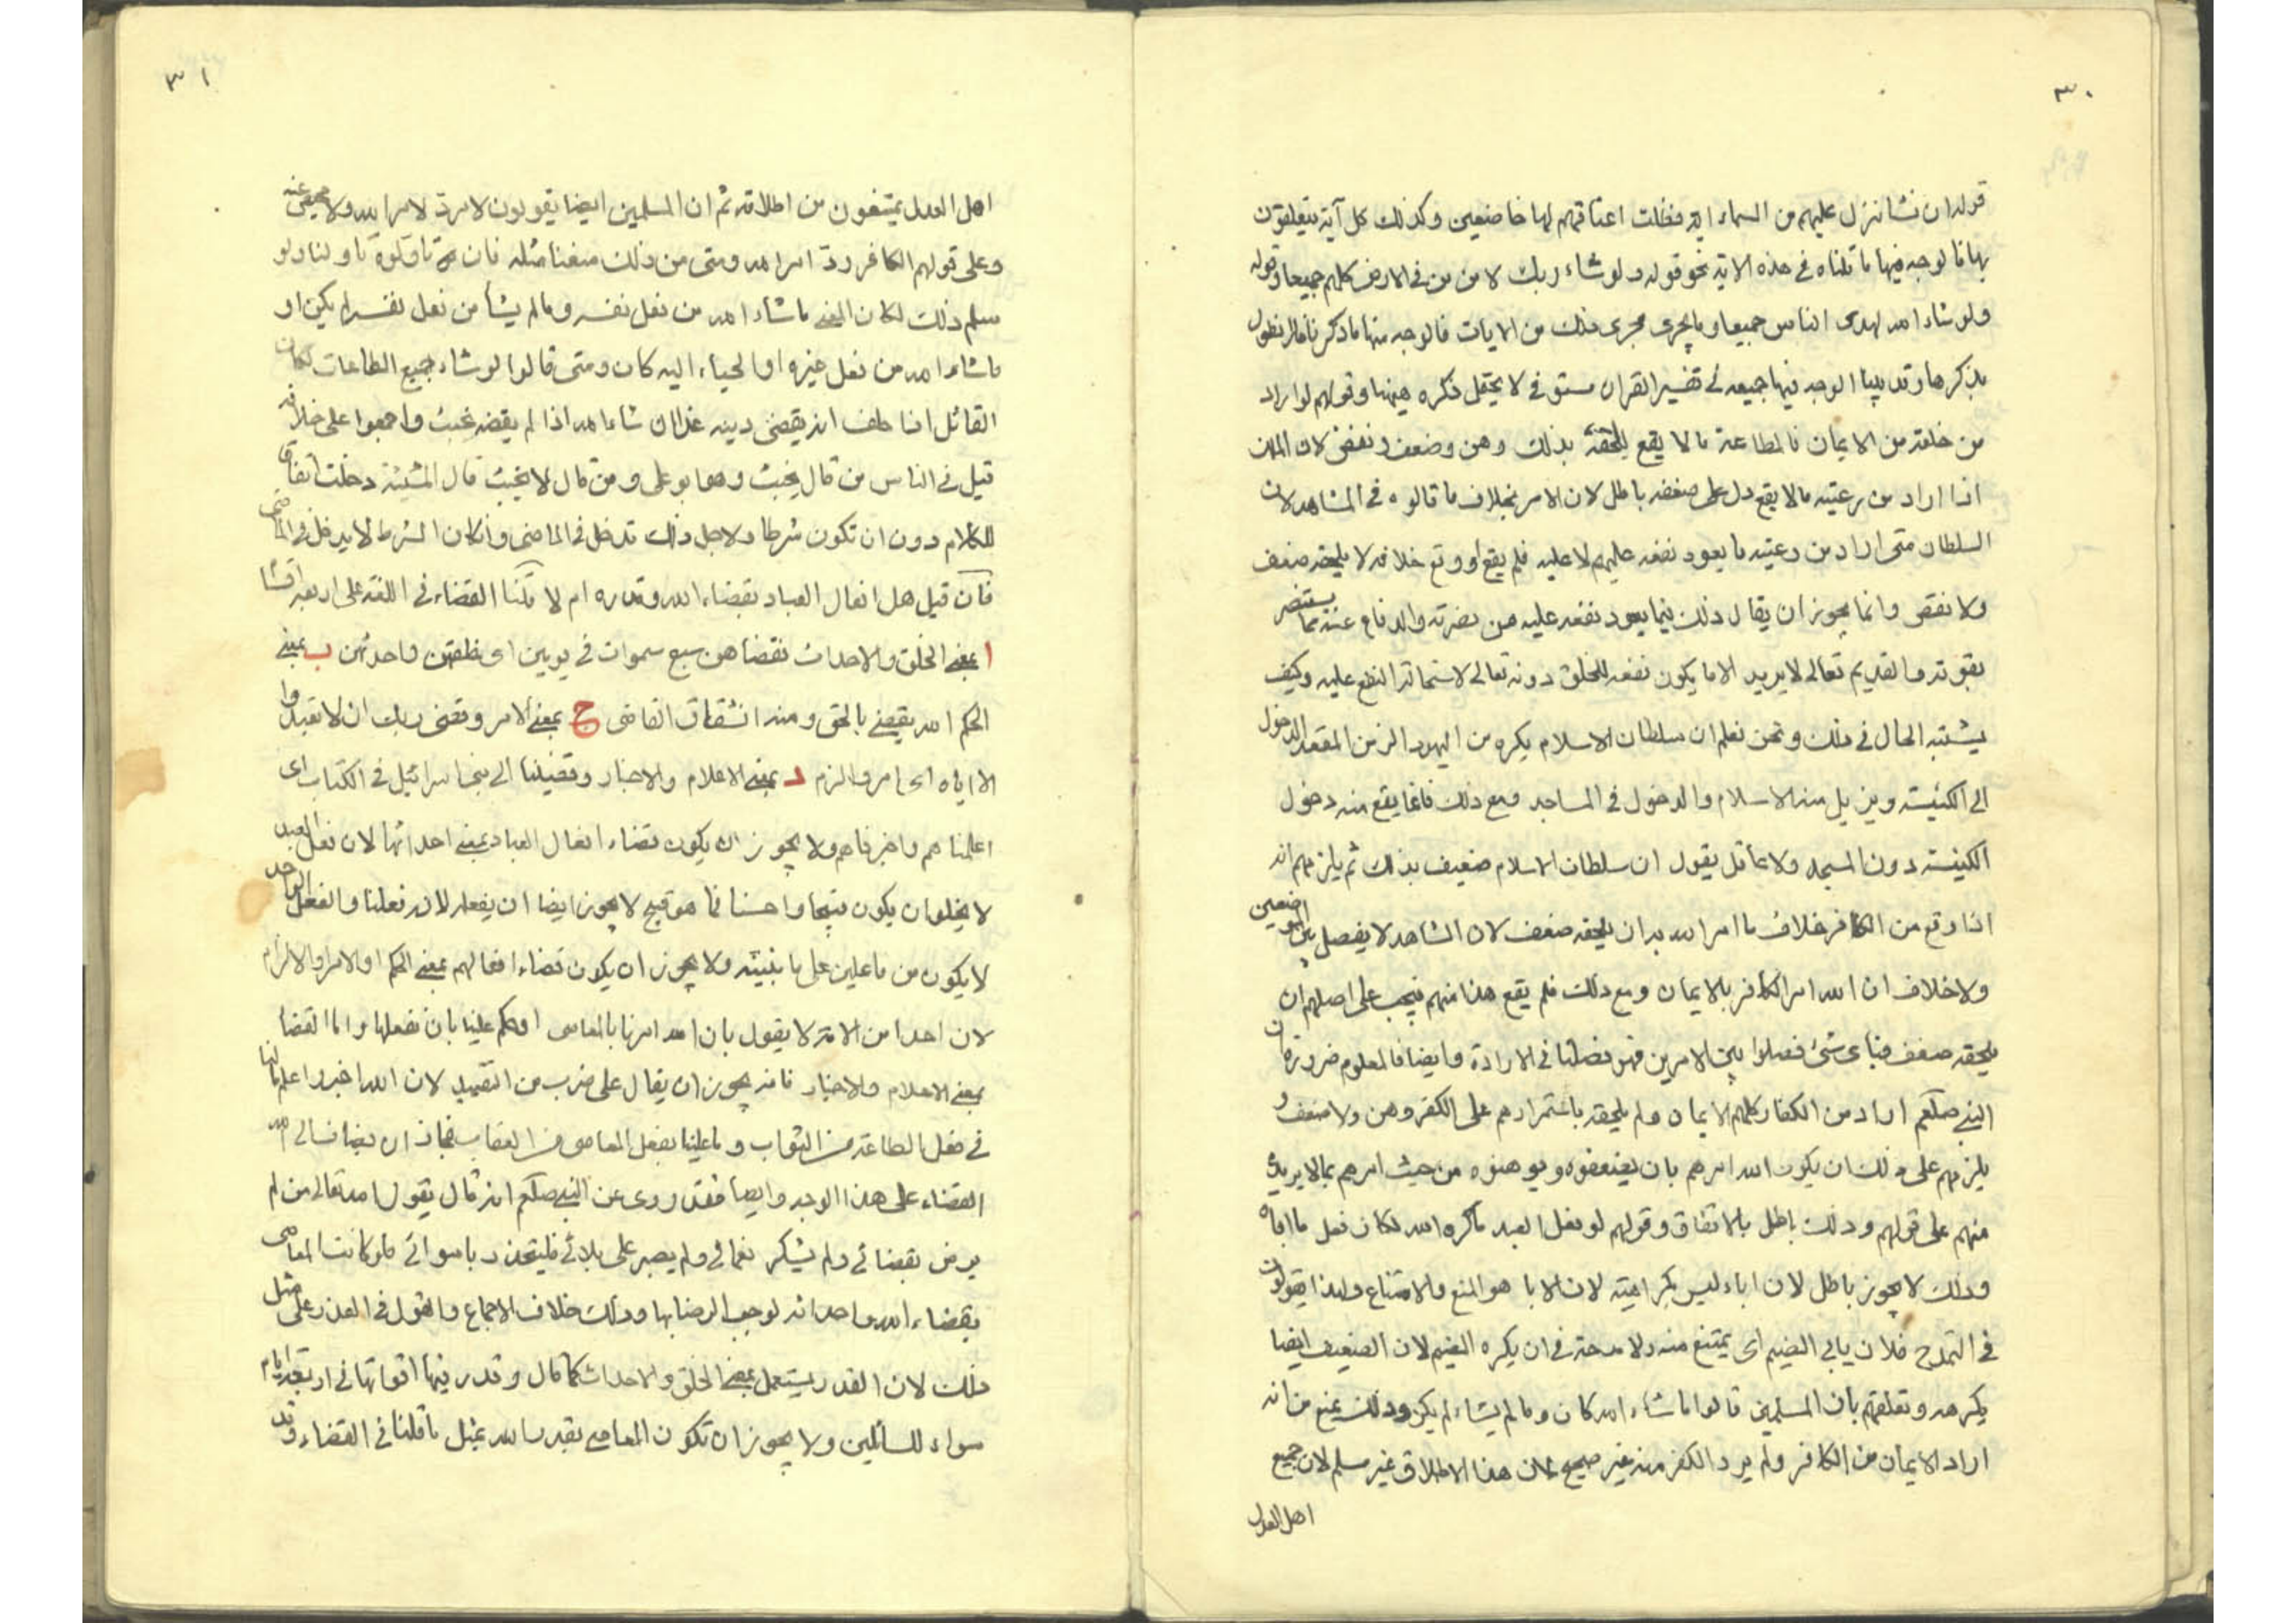 ٣٠
قوله ان نشا ننزل عليهم من السماء اية فظلت اعناقهم لها خاضعين وكذلك كل آية يتعلقون
بها فالوجه فيها ما قلناه في هذه الاية نحو قوله ولو شاء ربك لامن من في الارض كلهم جميعا وقوله
ولو شاء الله لهدى الناس جميعا وما يجرى مجرى ذلك من الايات فالوجه منها ما ذكرنا فلا نطول
بذكرها وقد بينا الوجه فيها جميعه في تفسير القران مستوفى لا يحتمل ذكره هيهنا وقولهم لو اراد
من خلقه من الايمان فالطاعة مالا يقع للحقه بذلك وهن وضعف ونقض لان الملك
اذا اراد من رعيته مالا يقع دل على ضعفه باطل لان الامر بخلاف ما قالوه في المشاهد لان
السلطان متى اراد من رعيته ما يعود نفعه عليهم لا عليه فلم يقع او وقع خلافه لا يلحقه ضعف
ولا نقص وانما يجوز ان يقال ذلك فيما يعود نفعه عليه من نصرته والدفاع عنه مما يستضر
بقوته والقديم تعالى لا يريد الا ما يكون نفعه للخلق دونه تعالى لاستحالة النفع عليه وكيف
يشتبه الحال في ذلك ونحن نعلم ان سلطان الاسلام يكره من اليهود الزمن المقعد الدخول
الى الكنيسة ويريد منه الاسلام والدخول في المساجد ومع ذلك فانما يقع منه دخول
الكنيسة دون المسجد ولا عاقل يقول ان سلطان الاسلام ضعيف بذلك ثم يلزمهم انه
اذا وقع من الكافر خلاف ما امر الله به ان يلحقه ضعف لان الشاهد لا يفصل بين الموضعين
ولا خلاف ان الله امر الكافر بالايمان ومع ذلك فلم يقع هذا منهم فيجب على اصلهم ان
يلحقه ضعف فباى شئ فصلوا بين الامرين فهو فصلنا في الارادة وايضا فالمعلوم ضرورة ان
النبي صلعم اراد من الكفار كلهم الايمان ولم يلحقه باستمرارهم على الكفر وهن ولا ضعف و
يلزمهم على ذلك ان يكون الله امرهم بان يضعفوه ويوهنوه من حيث امرهم بما لا يريده
منهم على قولهم وذلك باطل بالاتفاق وقولهم لو فعل العبد ما كره الله لكان فعل ما اباه
وذلك لا يجوز باطل لان اباء ليس بكراهيته لان الابا هو المنع والامتناع ولهذا يقولون
في التمدح فلان يابى الضيم اى يمتنع منه ولا مدحة في ان يكره الضيم لان الضعيف ايضا
يكرهه وتعلقهم بان المسلمين قالوا ما شاء الله كان وما لم يشاء لم يكن وذلك يمنع من انه
اراد الايمان من الكافر ولم يرد الكفر منه غير صحيح لان هذا الاطلاق غير مسلم لان جميع
اهل العدل
٣١
اهل العدل يمتنعون من اطلاقه ثم ان المسلمين ايضا يقولون لامرد لامر الله ولا محيص عنه
وعلى قولهم الكافر رد امر الله ومتى من ذلك منعنا مثله فان تاولوه تاولنا ولو
سلم ذلك لكان المعنى ما شاء الله من فعل نفسه وما لم يشأ من فعل نفسه لم يكن او
ما شاء الله من فعل غيره اوالجاء اليه كان ومتى قالوا لو شاء جميع الطاعات لكان
القائل اذا حلف انه يقضى دينه غدا ان شاء الله اذا لم يقضه يحنث واجمعوا على خلافه
قيل في الناس من قال يحنث وهو ابو على ومن قال لا يحنث قال المشيئة دخلت اتفاق
للكلام دون ان تكون شرطا ولاجل ذلك تدخل في الماضى وان كان الشرط لا يدخل في الماضى
فان قيل هل افعال العباد بقضاء الله وقدره ام لا قلنا القضاء في اللغة على اربعة اقسام
ا بمعنى الخلق والاحداث فقضاهن سبع سموات في يومين اى خلقهن واحدثهن ب بمعنى
الحكم الله يقضى بالحق ومنه اشتقاق القاضى ج بمعنى الامر وقضى ربك ان لا تعبدوا
الا اياه اى امر والزم د بمعنى الاعلام والاخبار وقضينا الى بنى اسرائيل في الكتاب اى
اعلمناهم واخبرناهم ولا يجوز ان يكون قضاء افعال العباد بمعنى احداثها لان فعل العبد
لا يخلو ان يكون قبيحا او حسنا فما هو قبيح لا يجوز ايضا ان يفعله لانه فعلنا والفعل الواحد
لا يكون من فاعلين على ما بنيته ولا يجوز ان يكون قضاء افعالهم بمعنى الحكم او الامر والالزام
لان احدا من الامة لا يقول بان الله امرنا بالمعاصى او حكم علينا بان نفعلها واما القضا
بمعنى الاعلام والاخبار فانه يجوز ان يقال على ضرب من التقييد لان الله اخبر واعلم ما لنا
في فعل الطاعة من الثواب وما علينا بفعل المعاصى من العقاب فجاز ان يضاف الى الله
القضاء على هذا الوجه وايضا فقد روى عن النبي صلعم انه قال يقول الله تعالى من لم
يرض بقضائي ولم يشكر نعمائي ولم يصبر على بلائي فليتخذ ربا سوائي فلو كانت المعاصى
بقضاء الله واحداثه لوجب الرضا بها وذلك خلاف الاجماع والقول في القدر على مثل
ذلك لان القدر يستعمل بمعنى الخلق والاحداث كما قال وقدر فيها اقواتها في اربعة ايام
سواء للسائلين ولا يجوز ان تكون المعاصى بقدر الله بمثل ما قلنا في القضاء وقد